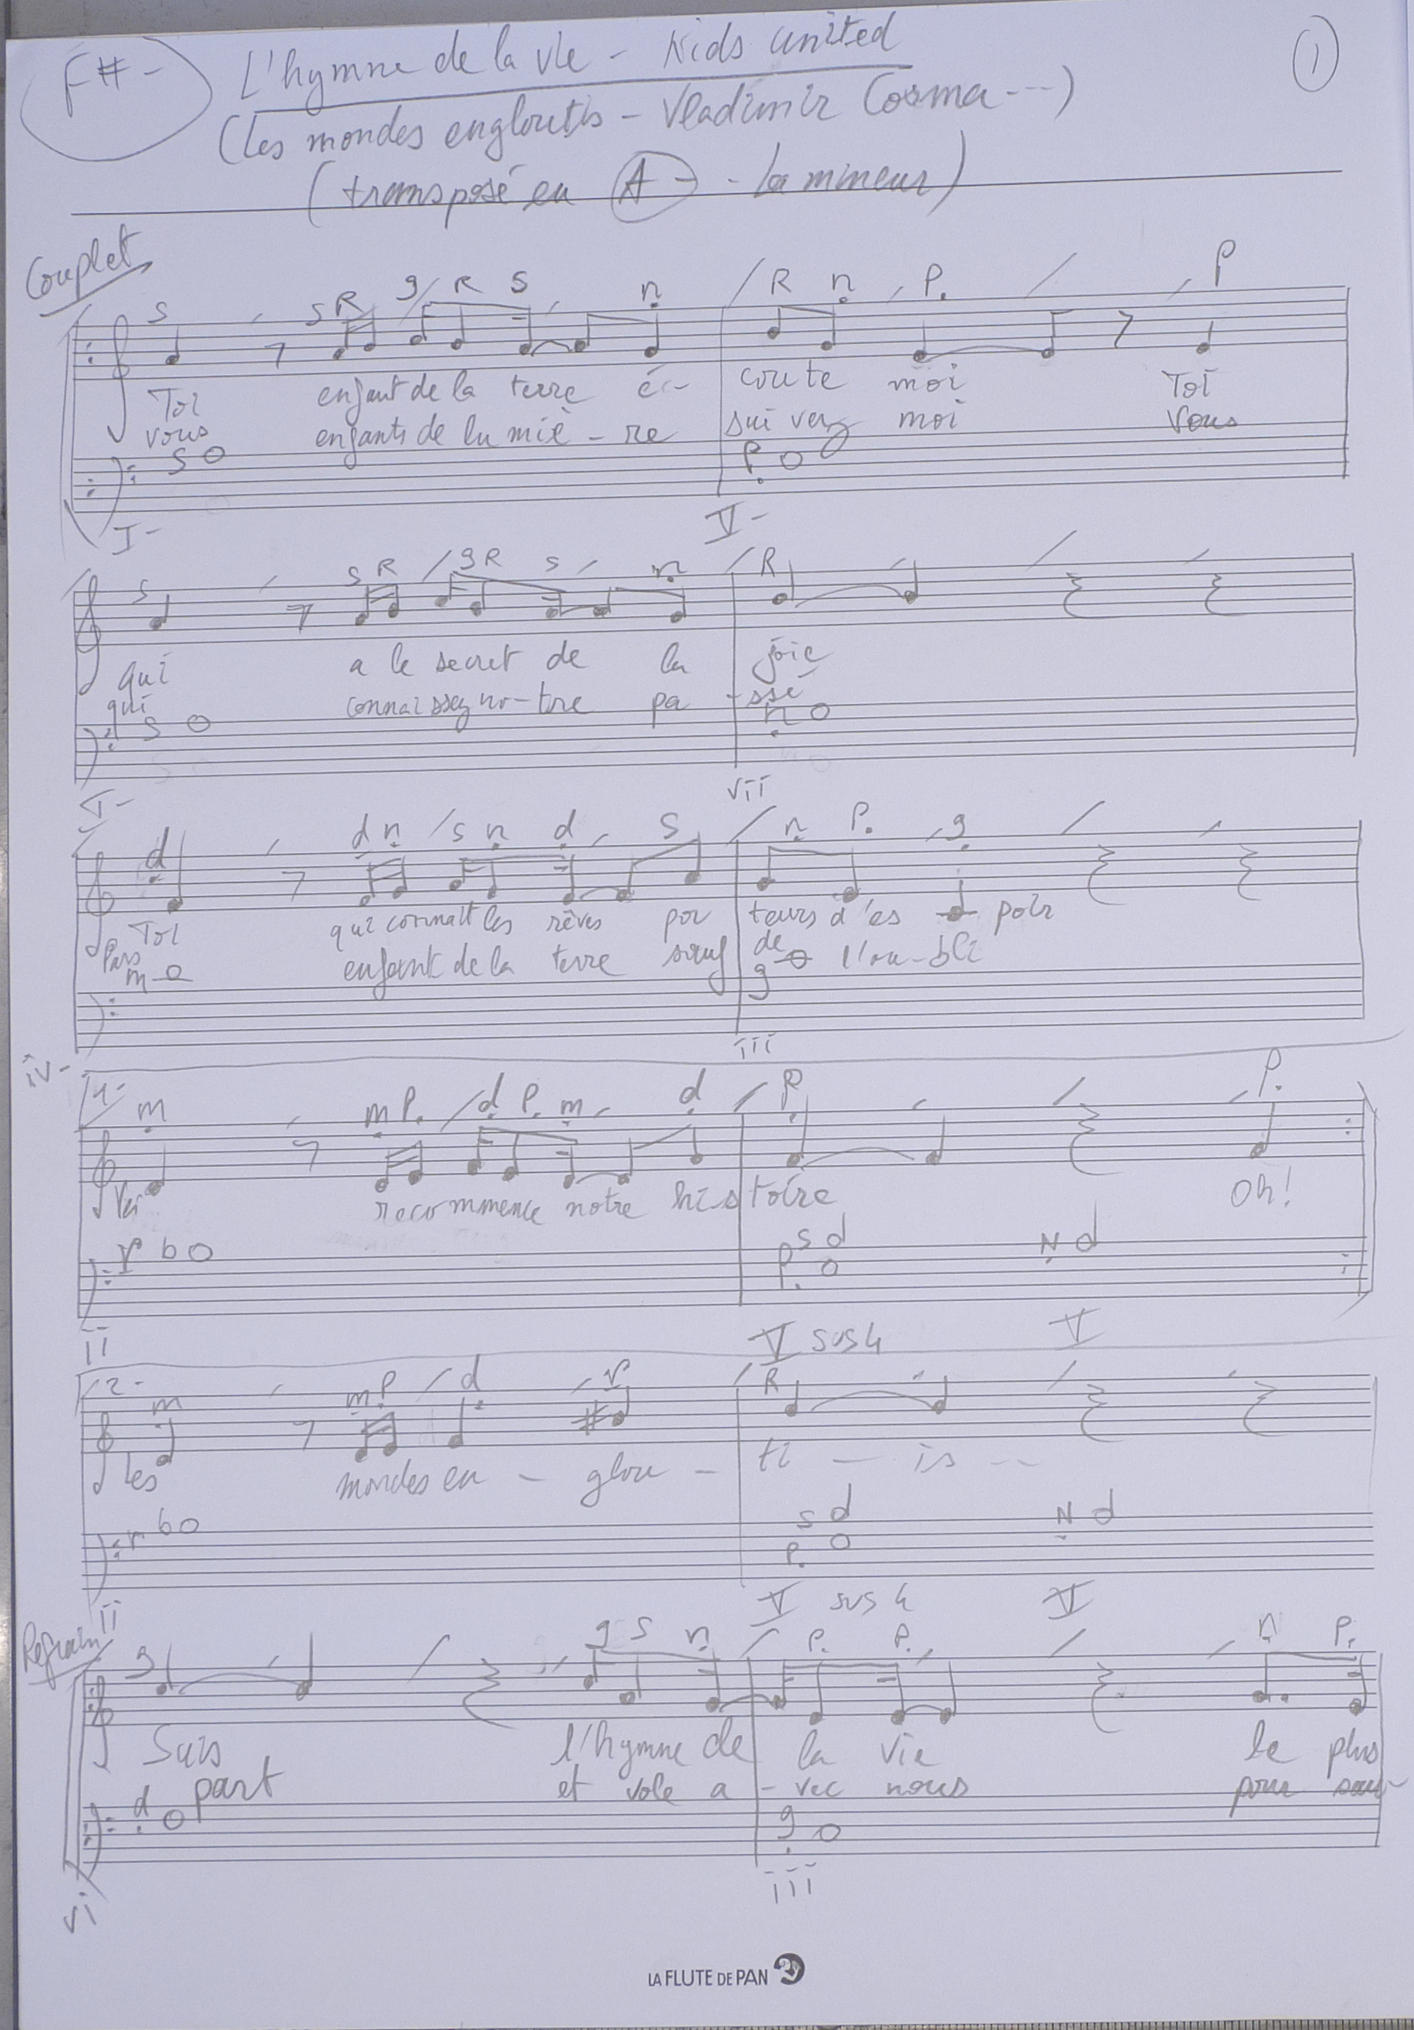 F# -
L'hymne de la vie - Kids united
①
(Les mondes engloutis - Vladimir Cosma ---)
(transposé en A- - La mineur)
Couplet
S S R g R S n R n P. P
Toi enfant de la terre é- coute moi Toi
vous enfants de lumiè - re suivez moi Vous
S P.
I- V-
S S R g R S n R
qui a le secret de la joie
qui connaissez no-tre pa -ssé
S n
I- vii
d d n S n d S n P. g
Toi qui connaît les rêves por teurs d'es poir
Pars enfant de la terre sauf de l'ou-bli
m g
iv- iii
1-
m m P. d P. m d P. P.
recommence notre his toire Oh!
r b S
P. N
ii V sus4 V
2-
m m P. d r R
les mondes en - glou - ti - is --
r b S
P. N
ii V sus4 V
Refrain
g g S n P. P. n P.
Suis l'hymne de la vie le plus
part et vole a - vec nous pour sau-
d g
vi iii
LA FLUTE DE PAN